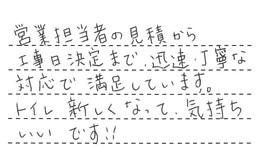 営業担当者の見積から
工事日決定まで、迅速・丁寧な
対応で満足しています。
トイレ新しくなって、気持ち
いいです!!